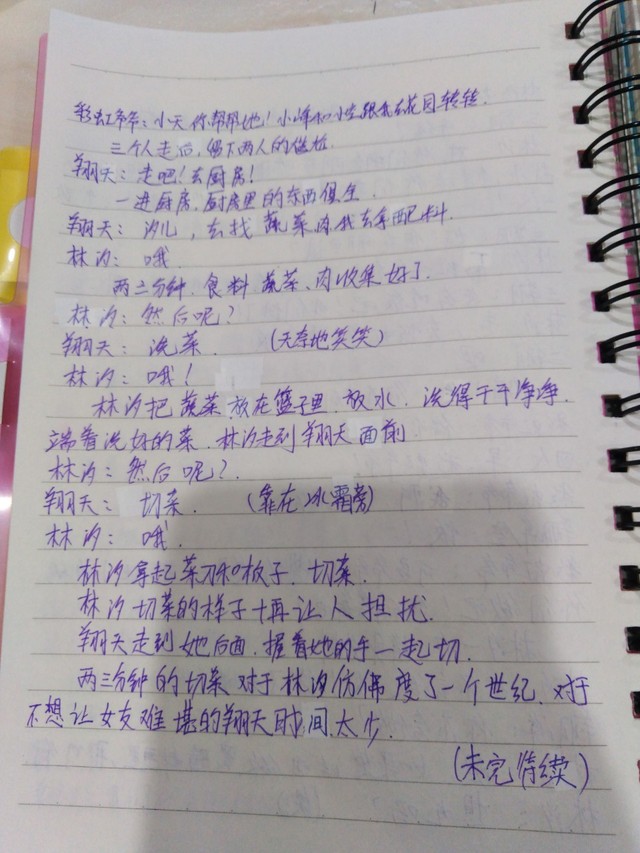 彩虹爷爷：小天你帮帮她！小峰和小空跟我去花园转转.
三个人走后,留下两人的尴尬.
翔天：走吧！去厨房！
一进厨房.厨房里的东西很全.
翔天：汐儿，去找蔬菜肉我去拿配料.
林汐：哦
两三分钟.食料蔬菜、肉收集好了.
林汐：然后呢？
翔天：洗菜.（无奈地笑笑）
林汐：哦！
林汐把蔬菜放在篮子里.放水.洗得干干净净.
端着洗好的菜.林汐走到翔天面前.
林汐：然后呢？.
翔天：切菜.（靠在冰霜旁）
林汐：哦.
林汐拿起菜刀和板子.切菜.
林汐切菜的样子十再让人担扰.
翔天走到她后面.握着她的手一起切.
两三分钟的切菜对于林汐仿佛度了一个世纪.对于
不想让女友难堪的翔天时间太少.
（未完待续）